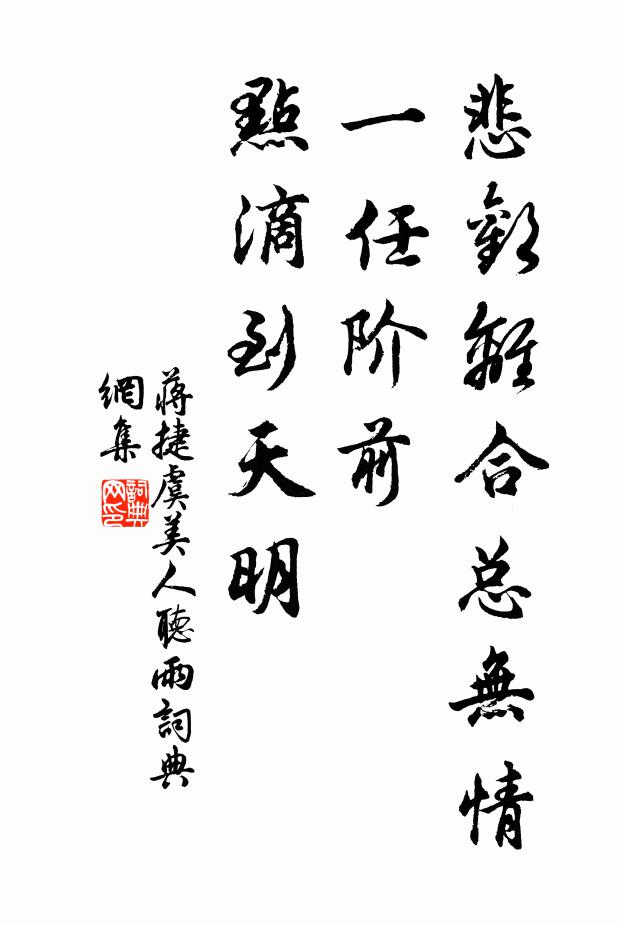 悲歡離合总無情
一任阶前
點滴到天明
蒋捷虞美人聽雨詞典
網集
詞典
网印